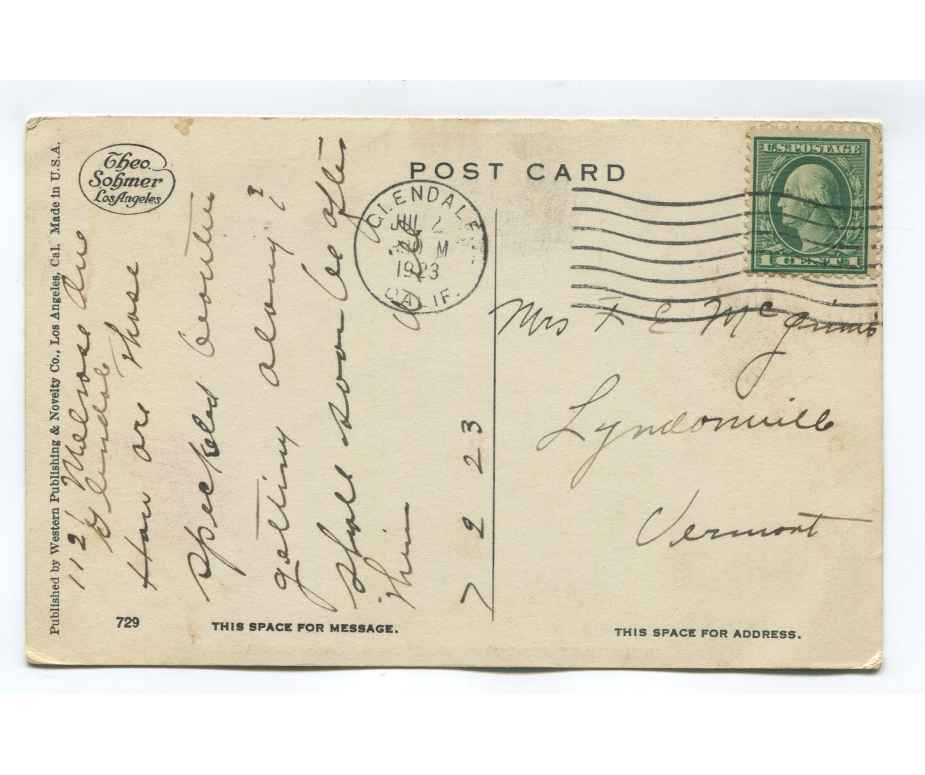 Published by Western Publishing & Novelty Co., Los Angeles, Cal. Made in U.S.A.
Theo.
Sohmer
Los Angeles
112 Melrose Ave
Glendale
How are those
speckled beauties
getting along?
Shall soon be after
them
7 2 23
729
THIS SPACE FOR MESSAGE.
POST CARD
GLENDALE
JUL 2
M
1923
CALIF.
U.S. POSTAGE
1 CENT 1
Mrs F E McGinnis
Lyndonville
Vermont
THIS SPACE FOR ADDRESS.